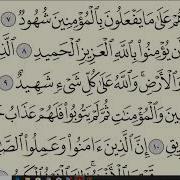 عَلَىٰ مَا يَفْعَلُونَ بِالْمُؤْمِنِينَ شُهُودٌ ٧
أَن يُؤْمِنُوا بِاللَّهِ الْعَزِيزِ الْحَمِيدِ ٨ الَّذِ
وَالْأَرْضِ وَاللَّهُ عَلَىٰ كُلِّ شَيْءٍ شَهِيدٌ ٩
ينَ وَالْمُؤْمِنَٰتِ ثُمَّ لَمْ يَتُوبُوا فَلَهُمْ عَذَابُ
يقِ ١٠ إِنَّ الَّذِينَ ءَامَنُوا وَعَمِلُوا